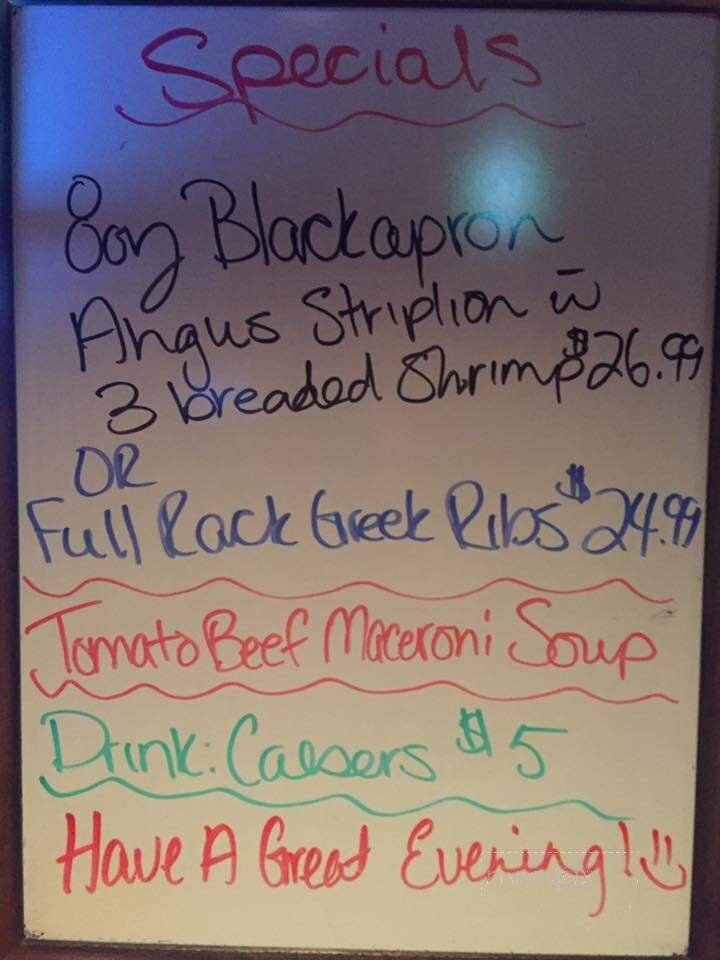 Specials
8oz Blackapron
Angus Striplion w
3 breaded Shrimp $26.99
OR
Full Rack Greek Ribs $24.99
Tomato Beef Maceroni Soup
Drink: Caesers $5
Have A Great Evening!